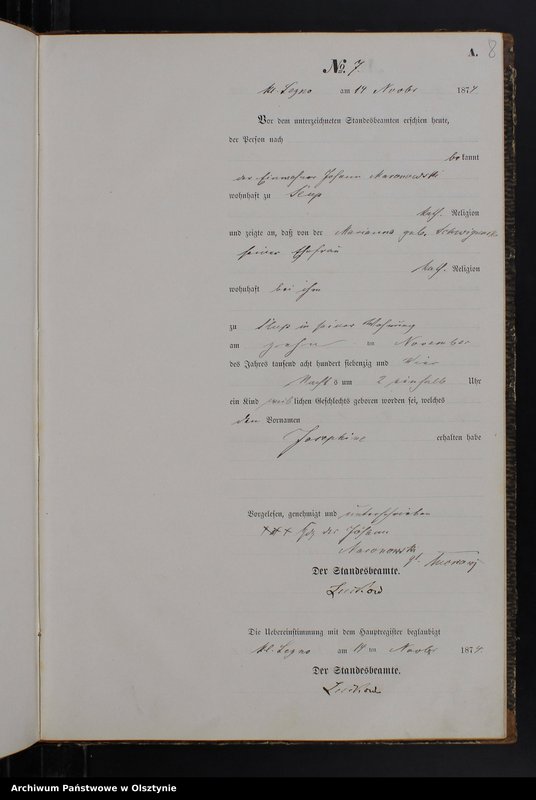 A. 8
No. 7.
Kl. Segno am 14 Novbr 1874.
Vor dem unterzeichneten Standesbeamten erschien heute,
der Person nach
bekannt
der Einwohner Johann
wohnhaft zu
kath. Religion
und zeigte an, daß von der Marianna geb.
seiner Ehefrau
kath. Religion
wohnhaft bei ihm
zu in seiner Wohnung
am zehn ten November
des Jahres tausend acht hundert siebenzig und vier
Nachts um 2 einhalb Uhr
ein Kind weiblichen Geschlechts geboren worden sei, welches
den Vornamen
Josephine erhalten habe
Vorgelesen, genehmigt und unterschrieben
+++ Hdz des Johann
Der Standesbeamte.
Die Uebereinstimmung mit dem Hauptregister beglaubigt
Kl. Segno am 14 ten Novbr 1874.
Der Standesbeamte.
Archiwum Państwowe w Olsztynie